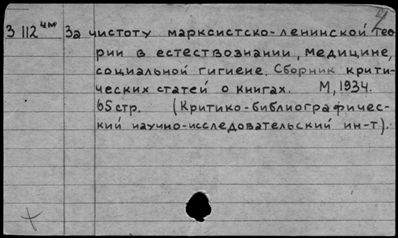 З 112 чм За чистоту марксистско-ленинской тео-
рии в естествознании, медицине,
социальной гигиене. Сборник крити-
ческих статей о книгах. М, 1934.
65 стр. (Критико-библиографичес-
кий научно-исследовательский ин-т).